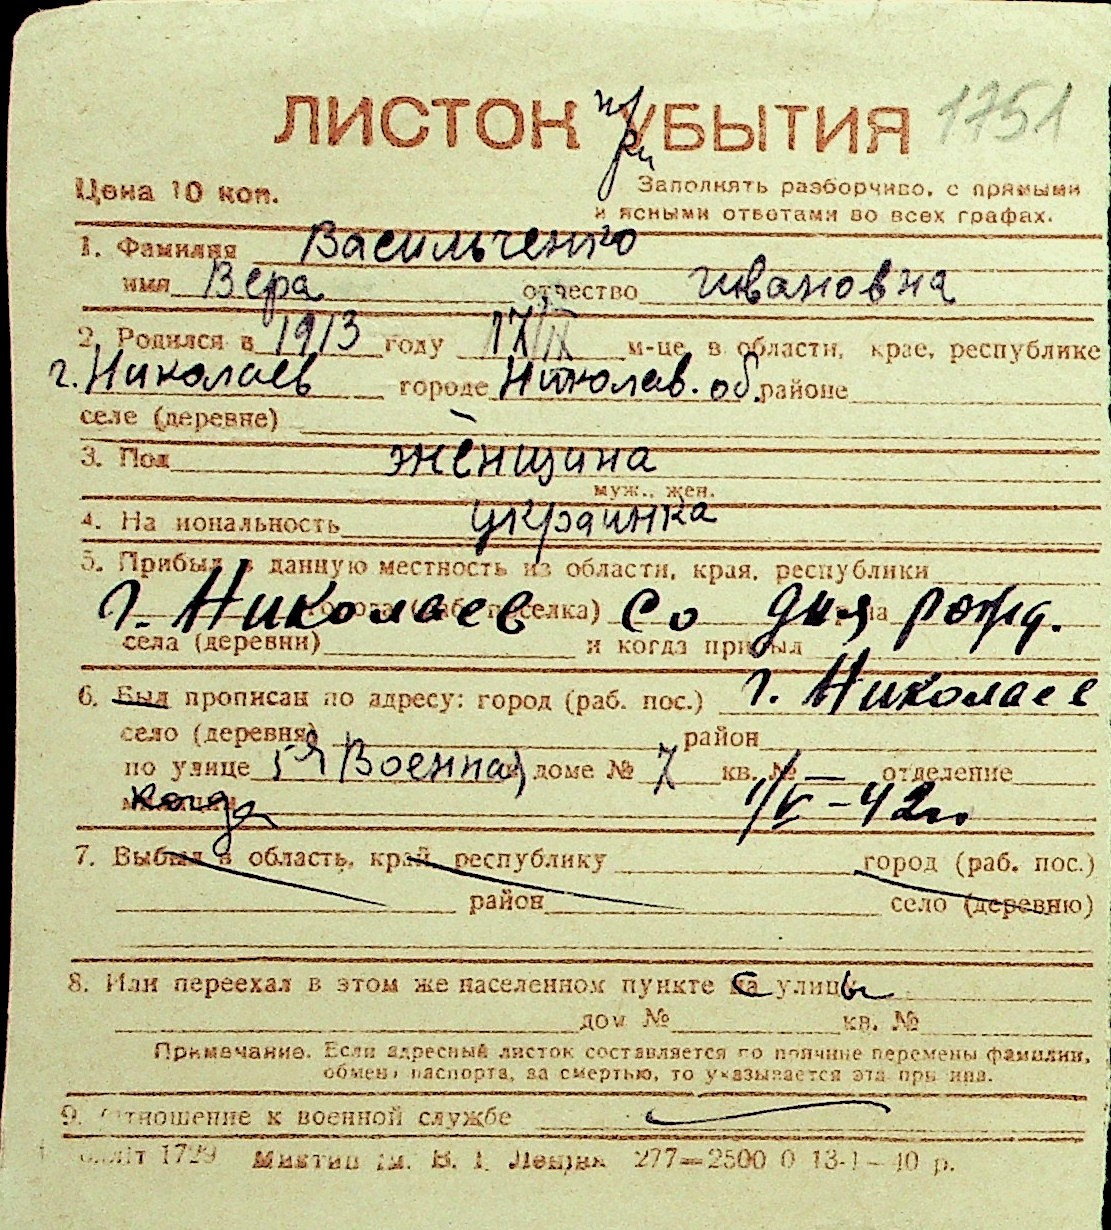 ЛИСТОК при УБЫТИЯ 1751
Цена 10 коп.
Заполнять разборчиво, с прямыми
и ясными ответами во всех графах.
1. Фамилия Васильченко
имя Вера отчество Ивановна
2. Родился в 1913 году 17/IX м-це, в области, крае, республике
г. Николаев городе Николав. об. районе
селе (деревне)
3. Пол женщина
муж., жен.
4. На иональность украинка
5. Прибыл в данную местность из области, края, республики
г. Николаев со дня рожд.
села (деревни) и когда прибыл
6. Был прописан по адресу: город (раб. пос.) г. Николаев
село (деревня) район
по улице 5-я Военная доме № 7 кв. № — отделение
когда 1/V-42г.
7. Выбыл в область, край, республику город (раб. пос.)
район село (деревню)
8. Или переехал в этом же населенном пункте с улицы
дом № кв. №
Примечание. Если адресный листок составляется по причине перемены фамилии,
обмена паспорта, за смертью, то указывается эта причина.
9. Отношение к военной службе
1729 277—2500 0 13-1—40 р.